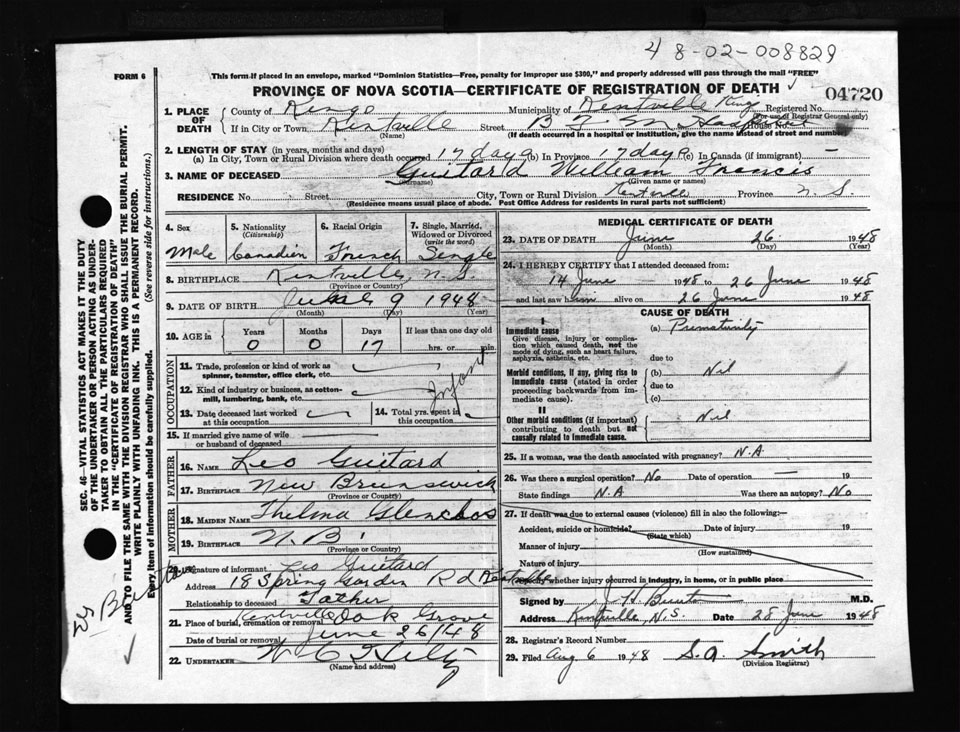 48-02-008829
FORM 6
This form if placed in an envelope, marked "Dominion Statistics—Free, penalty for improper use $300," and properly addressed will pass through the mail "FREE"
PROVINCE OF NOVA SCOTIA—CERTIFICATE OF REGISTRATION OF DEATH
04720
1. PLACE OF DEATH
County of Kings Municipality of Kentville Kings Registered No.
(For use of Registrar General only)
If in City or Town Kentville Street House No.
(Name) (If death occurred in a hospital or institution, give name instead of street and number)
2. LENGTH OF STAY (in years, months and days)
(a) In City, Town or Rural Division where death occurred 17 days (b) In Province 17 days (c) In Canada (if immigrant) —
3. NAME OF DECEASED Guitard William Francis
(Surname) (Given name or names)
RESIDENCE No. Street City, Town or Rural Division Kentville Province N. S.
(Residence means usual place of abode. Post Office Address for residents in rural parts not sufficient)
4. Sex 5. Nationality (Citizenship) 6. Racial Origin 7. Single, Married, Widowed or Divorced (write the word)
Male Canadian French Single
8. BIRTHPLACE Kentville, N.S.
(Province or Country)
9. DATE OF BIRTH June 9 1948
(Month) (Day) (Year)
10. AGE in Years Months Days If less than one day old
0 0 17 hrs. or min.
OCCUPATION
11. Trade, profession or kind of work as spinner, teamster, office clerk, etc.
12. Kind of industry or business, as cotton-mill, lumbering, bank, etc.
Infant
13. Date deceased last worked at this occupation
14. Total yrs. spent in this occupation
15. If married give name of wife or husband of deceased
FATHER
16. NAME Leo Guitard
17. BIRTHPLACE New Brunswick
(Province or Country)
MOTHER
18. MAIDEN NAME Thelma
19. BIRTHPLACE N.B.
(Province or Country)
20. Signature of informant Leo Guitard
Address 18 Spring Garden Rd Kentville
Relationship to deceased Father
21. Place of burial, cremation or removal Kentville Oak Grove
Date of burial or removal June 26/48
22. UNDERTAKER W C Hiltz
(Name and address)
MEDICAL CERTIFICATE OF DEATH
23. DATE OF DEATH June 26 1948
(Month) (Day) (Year)
24. I HEREBY CERTIFY that I attended deceased from:
14 June 1948 to 26 June 1948
and last saw him alive on 26 June 1948
CAUSE OF DEATH
I
Immediate cause (a) Prematurity
Give disease, injury or complication which caused death, not the mode of dying, such as heart failure, asphyxia, asthenia, etc.
due to
Morbid conditions, if any, giving rise to immediate cause (stated in order proceeding backwards from immediate cause).
(b) Nil
due to
(c)
II
Other morbid conditions (if important) contributing to death but not causally related to immediate cause.
Nil
25. If a woman, was the death associated with pregnancy? N.A.
26. Was there a surgical operation? No Date of operation — 19
State findings N.A Was there an autopsy? No
27. If death was due to external causes (violence) fill in also the following:—
Accident, suicide or homicide? Date of injury 19
(State which)
Manner of injury
(How sustained)
Nature of injury
Specify whether injury occurred in industry, in home, or in public place
Signed by M.D.
Address Kentville, N.S. Date 28 June 1948
28. Registrar's Record Number
29. Filed Aug 6 1948 S.A. Smith
(Division Registrar)
SEC. 46—VITAL STATISTICS ACT MAKES IT THE DUTY
OF THE UNDERTAKER OR PERSON ACTING AS UNDER-
TAKER TO OBTAIN ALL THE PARTICULARS REQUIRED
IN THE "CERTIFICATE OF REGISTRATION OF DEATH"
AND TO FILE THE SAME WITH THE DIVISION REGISTRAR WHO SHALL ISSUE THE BURIAL PERMIT.
WRITE PLAINLY WITH UNFADING INK. THIS IS A PERMANENT RECORD.
Every item of information should be carefully supplied. (See reverse side for instructions.)